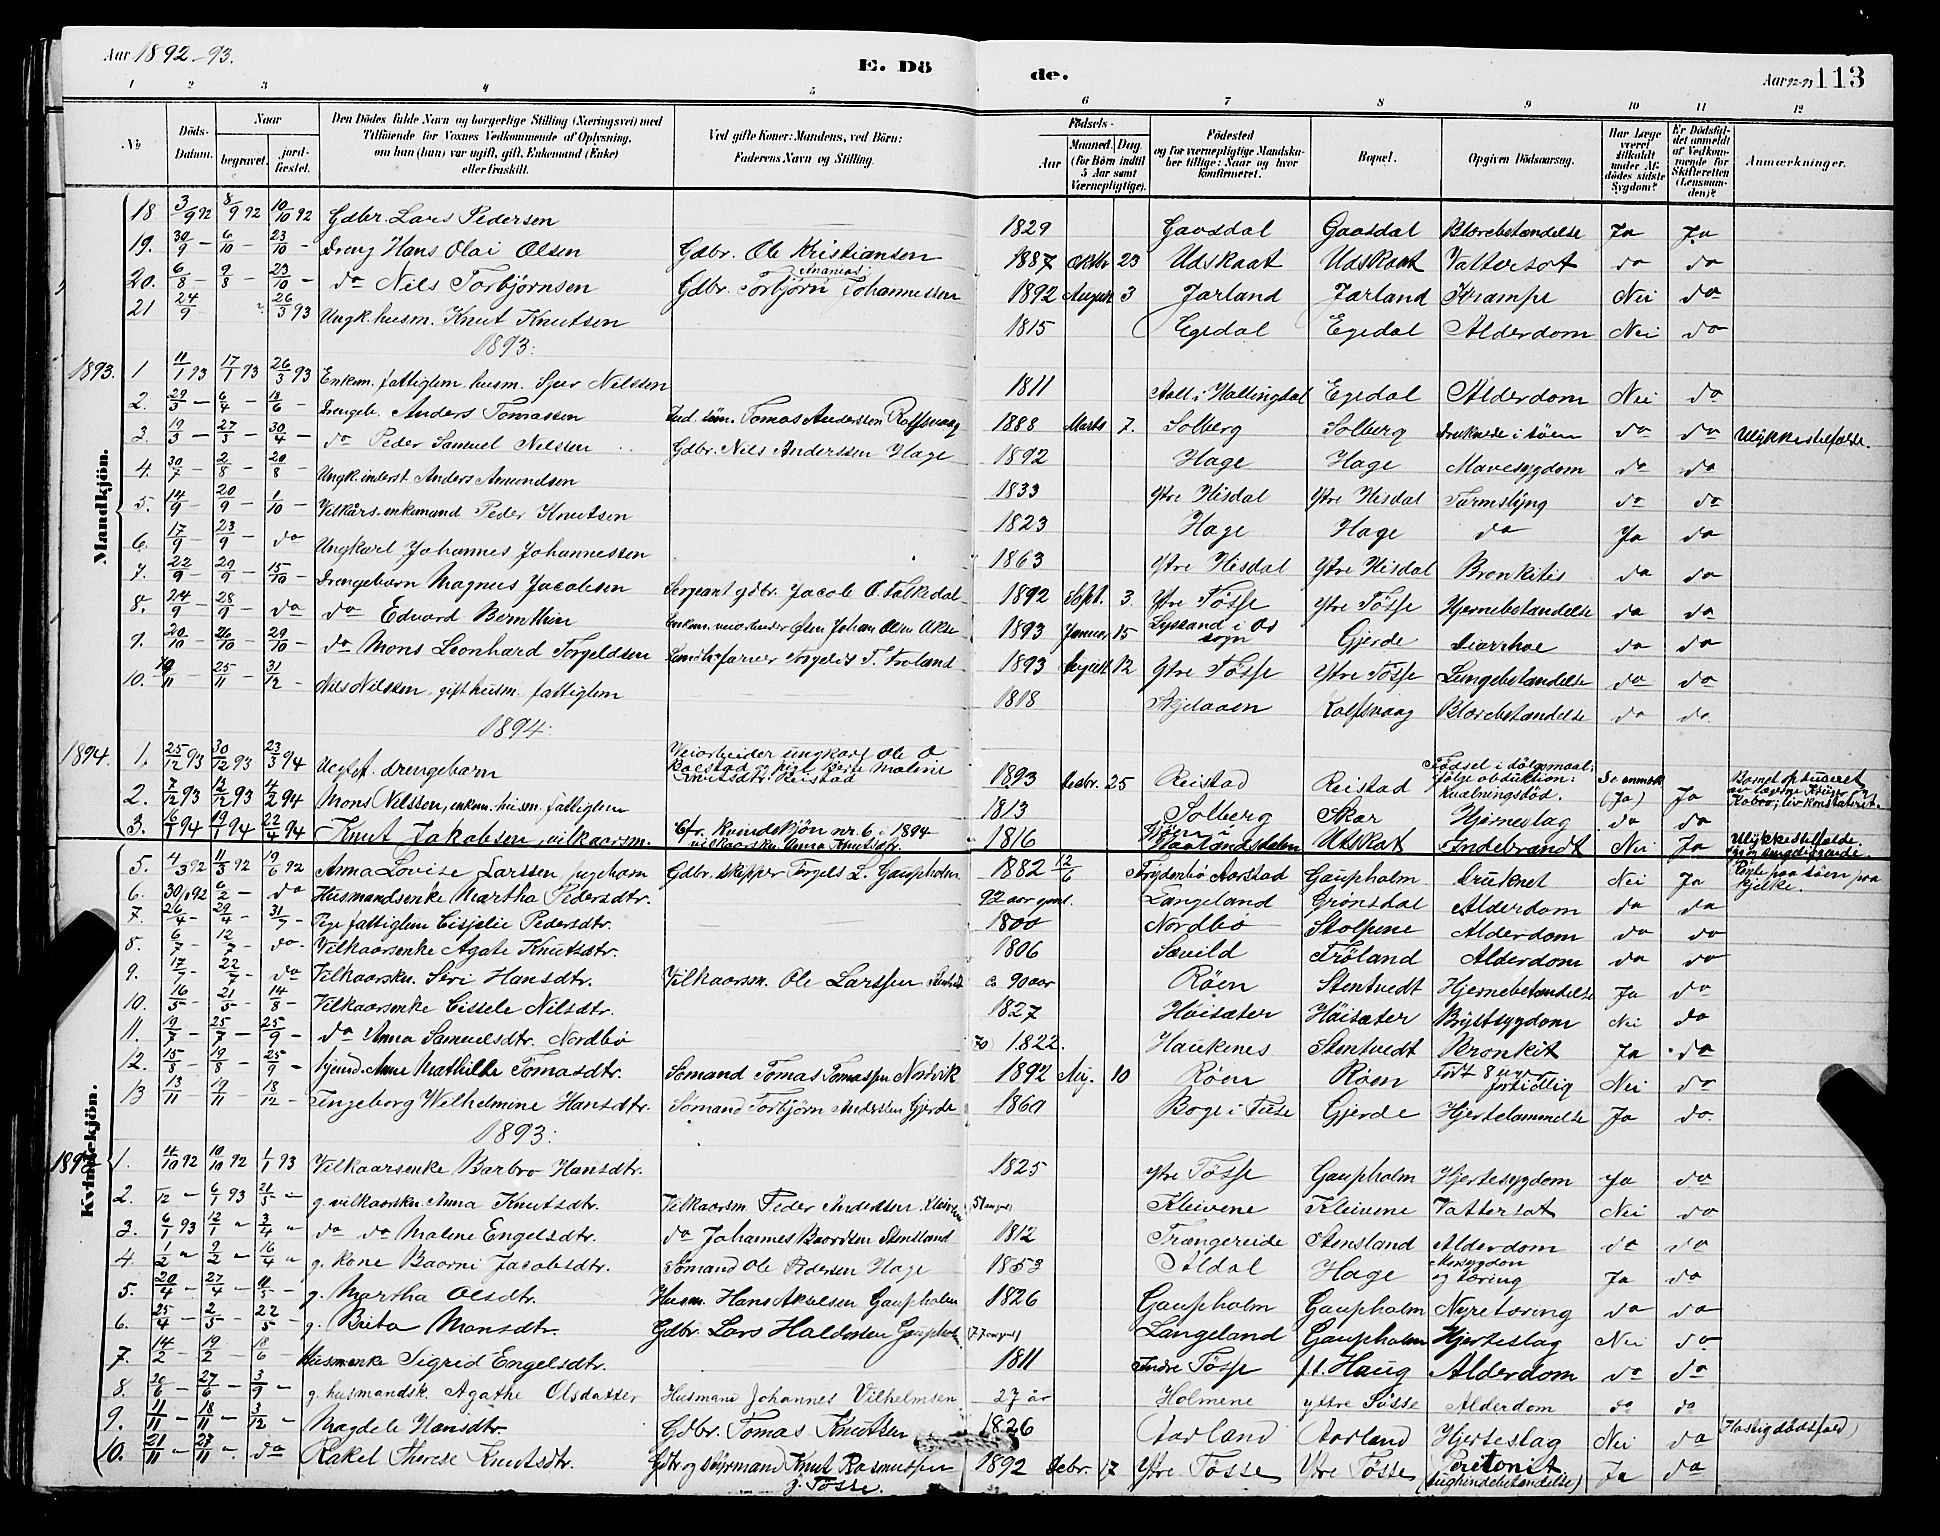 Aar 1892-93.
E. Dö de.
Aar 92-93 113
1 2 3 4 5 6 7 8 9 10 11 12
No
Döds-Datum.
Naar
begravet.
jord-fæstet.
Den Dödes fulde Navn og borgerlige Stilling (Næringsvei) med
Tilföiende for Voxnes Vedkommende af Oplysning,
om han (hun) var ugift, gift, Enkemand (Enke)
eller fraskilt.
Ved gifte Koner: Mandens, ved Börn:
Faderens Navn og Stilling.
Födsels-
Aar
Maaned. Dag
(for Börn indtil
5 Aar samt
Værnepligtige).
Födested
og for værnepligtige Mandska-
ber tillige: Naar og hvor
konfirmeret.
Bopæl.
Opgiven Dödsaarsag.
Har Læge
været
tilkaldt
under Af-
dödes sidste
Sygdom?
Er Dödsfal-
det anmeldt
af Vedkom-
mende for
Skifteretten
(Lensman-
den)?
Anmærkninger.
Mandkjön.
18 3/9 92 8/9 92 10/10 92 Gdbr. Lars Pedersen 1829 Gaasdal Gaasdal Blærebetændelse Ja Ja
19. 30/9 - 6/10 - 23/10 - Dreng Hans Olai Olsen Gdbr. Ole Kristiansen 1887 Oktbr 23 Udskaat Udskaat Vattersot do do
20. 6/8 - 9/8 - 23/10 - do Nils Torbjørnsen Gdbr. Torbjørn Johannessen 1892 August 3 Jarland Jarland Krampe Nei do
21 24/9 26/3 93 Ungk. husm. Knut Knutsen 1815 Egedal Egedal Alderdom Nei do
1893:
1893. 1 11/1 93 17/1 93 26/3 93 Enkem. fattiglem, husm. Sjur Nilssen 1811 Aal i Hallingdal Egedal Alderdom Nei do
2. 29/3 - 6/4 - 18/6 - Drengeb. Anders Tomassen Tomas Anderssen Rolfsvaag 1888 Marts 7. Solberg Solberg Druknede i søen do do Ulykkestilfælde.
3. 19/3 - 27/3 - 30/4 - do Peder Samuel Nilssen Gdbr. Nils Anderssen Hage 1892 Hage Hage Mavesygdom do do
4. 30/7 - 2/8 - 20/8 - Ungk. inderst Anders Amundsen 1833 Ytre Hisdal Ytre Hisdal Tarmslyng do do
5. 14/9 - 20/9 - 1/10 - Vilkårs. enkemand Peder Knutsen 1823 Hage Hage do Ja do
6. 17/9 - 23/9 - do Ungkarl Johannes Johannessen 1863 Ytre Hisdal Ytre Hisdal Bronkitis do do
7. 22/9 - 29/9 - 15/10 - Drengebarn Magnus Jacobsen Sergeant gdbr. Jacob O. Folkedal 1892 Sept. 3 Ytre Tøsse Ytre Tøsse Hjernebetændelse do do
8. 24/9 - 28/9 - do do Edvard Bernthin Johan Olsen 1893 Januar 15 Lyssand i Os sogn Gjerde Diarrhoe do do
9. 20/10 - 26/10 - 29/10 - do Mons Leonhard Torgeldsen 1893 August 12 Ytre Tøsse Ytre Tøsse Lungebetændelse do do
10. 19/11 - 25/11 - 31/12 - Nils Nilssen, gift husm. fattiglem 1818 Rolfsvaag Blærebetændelse do do
1894:
1894. 1. 25/12 93 30/12 93 23/3 94 Uegtef. drengebarn Veiarbeider ungkarl Ole O
Baestad og pige Malene
Knutsdtr. Reistad 1893 Desbr. 25 Reistad Reistad Fødsel i dølgsmaal:
ifølge obduktion:
kvælningsdød. (Ja) Ja Barnet obduceret
av lægerne Krüger og
Kobro; liv konstateret.
2. 7/12 93 13/12 93 14/2 94 Mons Nilssen, enkem. husm. fattiglem 1813 Solberg Skar Hjerneslag do do
3. 16/1 94 19/1 94 22/4 94 Knut Jakobsen, vilkaarsm. Cfr. kvindekjön nr. 6 i 1894
vilkaarsk. Anna Knutsdtr. 1816 Utskot Indebrændt Nei Ja Ulykkestilfælde.
Kvindekjön.
5. 4/3 92 11/3 92 19/6 92 Anna Lovise Larssen, pigebarn Gdbr. skipper Torgels L. Gaupholm 1882 12/6 Frydenbø Aarstad Gaupholm Druknet Nei Ja paa søen paa kjelke.
6. 30/1 92 6/2 - do Husmandsenke Martha Pedersdtr. 92 aar gml. Langeland Grønsdal Alderdom do do
7. 26/4 - 29/4 - 31/7 - Pige fattiglem Cisjelie Pedersdtr. 1800 Nordbø Stolpene Alderdom do do
8. 6/7 - 12/7 - do Vilkaarsenke Agate Knutsdtr. 1806 Sæveld Frøland Alderdom do do
9. 17/7 - 22/7 - do Vilkaarskn. Siri Hansdtr. Vilkaarsm. Ole Larssen c 90 aar Røen Stentvedt Hjernebetændelse Ja do
10. 16/5 - 21/5 - 14/8 - Vilkaarsenke Cissele Nilsdtr. 1827 Høisæter Høisæter Brystsygdom Nei do
11. 19/7 - 25/7 - 25/9 - do Anna Samuelsdtr. Nordbø 70 1822. Haukenes Stentvedt Bronkit Ja do
12. 15/8 - 19/8 - 25/9 - Anne Mathilde Tomasdtr. Sømand Tomas Tomassen Nordvik 1892 Aug. 10 Røen Røen Født 8 uger
fortidlig Nei do
13 13/11 - 19/11 - 18/12 - Ingeborg Wilhelmine Hansdtr. Sømand Torbjørn Anderssen Gjerde 1860 Boge i Fuse Gjerde Hjertelammelse Ja do.
1893:
1893 1. 4/10 92 10/10 92 1/1 93 Vilkaarsenke Barbro Hansdtr. 1825 Ytre Tøsse Gaupholm Hjertesygdom Ja do
2. /12 - 6/1 93 21/5 - g. vilkaarskn. Anna Knutsdtr. Vilkaarsm. Peder Anderssen Kleivene Kleivene Kleivene Vattersot Nei do
3. 6/1 93 12/1 " 3/4 " do do Malene Engelsdtr. do Johannes Baardsen Stensland 1812 Trængereide Stensland Alderdom do do
4. 1/2 " 9/2 - 16/4 " g. kone Baarni Jacobsdtr. Sømand Ole Pedersen Hage 1853 Aldal Hage
og tæring Ja do
5. 20/4 - 27/4 - 11/5 - g. Martha Olsdtr. Husm. Hans Akselsen Gaupholm 1826 Gaupholm Gaupholm Nyretæring do do
6. 25/4 - 2/5 - 22/5 - g. Brita Monsdtr. Gdbr. Lars Haldorsen Gaupholm (77 aar gml) Langeland Gaupholm Hjerteslag Nei do
7. 14/2 - 19/2 - 18/6 - Husm.enke Sigrid Engelsdtr. 1811 Indre Tøsse f. t. Haug Alderdom do do
8. 20/6 - 27/6 - 3/9 - g. husmandsk. Agathe Olsdatter Husmand Johannes Vilhelmsen 27 år Holmene ytre Tøsse Alderdom do do
9. 11/11 - 18/11 - 3/12 - Magdele Hansdtr. Gdbr. Tomas Knutsen 1826 Aarland Aarland Hjerteslag Nei do (Hastig dødsfald)
10. 21/11 - 27/11 - do Rakel Therese Knutsdtr. Gdbr og styrmand Knut Rasmussen
y. Tøsse. 1892 Debr. 17 Ytre Tøsse Ytre Tøsse Peritonit
(bughindebetændelse) Ja do